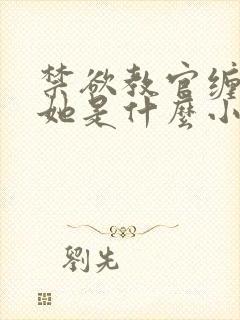 禁欲教官缠
她是什麼小
劉先